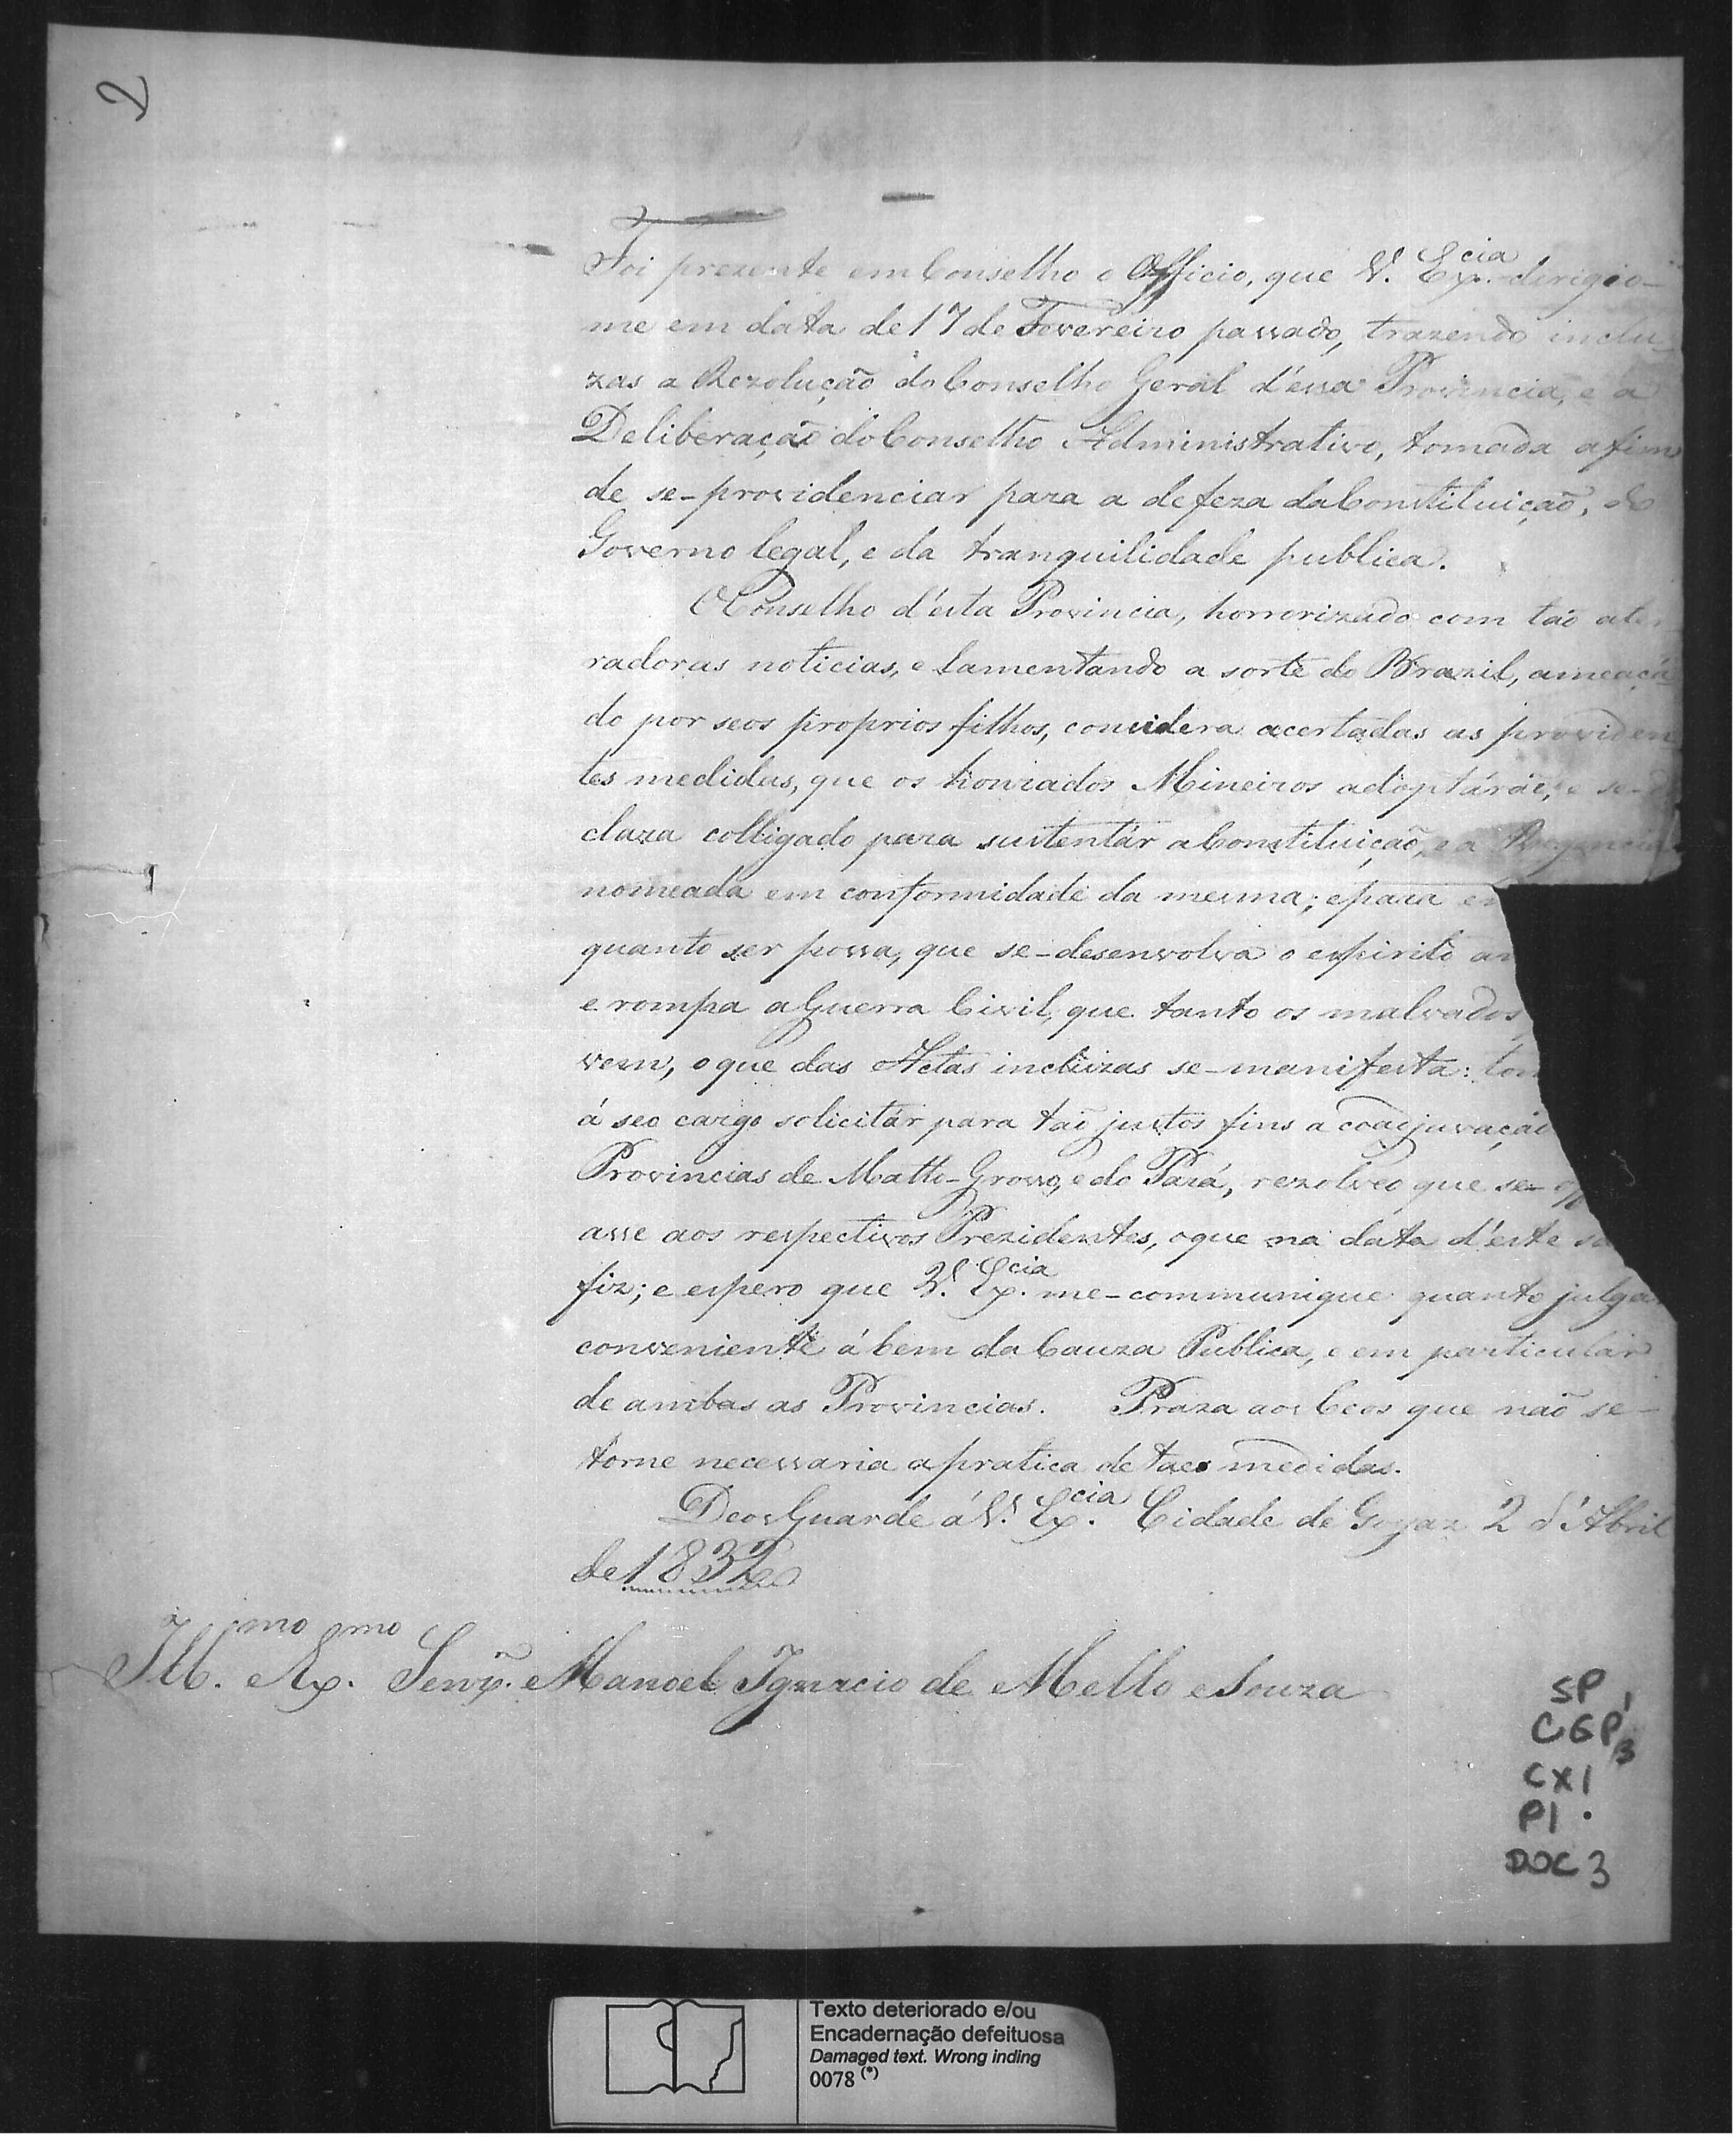 2
Foi prezente em Conselho o Officio, que V. Ex.cia dirigio-
me em data de 17 de Fevereiro passado, trazendo inclu-
zas a Rezolução do Conselho Geral d'essa Provincia, e a
Deliberação do Conselho Administrativo, tomada afim
de se-providenciar para a defeza da Constituição, do
Governo legal, e da tranquilidade publica.
O Conselho d'esta Provincia, horrorizado com tão ater-
radoras noticias, e lamentando a sorte do Brazil, ameaça-
do por seos proprios filhos, considera acertadas as providen
tes medidas, que os honrados Mineiros adoptárão, e se-de
clara colligado para sustentár a Constituição, e a Regencia
nomeada em conformidade da mesma; e para
quanto ser possa, que se-desenvolva o espirito
e rompa a Guerra Civil, que tanto os malvados
vem, o que das Actas incluzas se-manifesta:
á seo cargo solicitár para tão justos fins a coadjuvação
Provincias de Matto-Grosso, e do Pará, rezolveo que se-
asse aos respectivos Prezidentes, o que na data d'este
fiz; e espero que V. Ex.cia me-communique quanto julgar
conveniente á bem da Cauza Publica, e em particulár
de ambas as Provincias. Praza aos Ceos que não se-
torne necessaria a pratica de taes medidas.
Deos Guarde á V. Ex.cia Cidade de Goyaz 2 d'Abril
de 1832
Ill.mo Ex.mo Senr. Manoel Ignacio de Mello e Souza
SP 1
CGP 3
CX 1
P1.
DOC 3
Texto deteriorado e/ou
Encadernação defeituosa
Damaged text. Wrong inding
0078 (*)